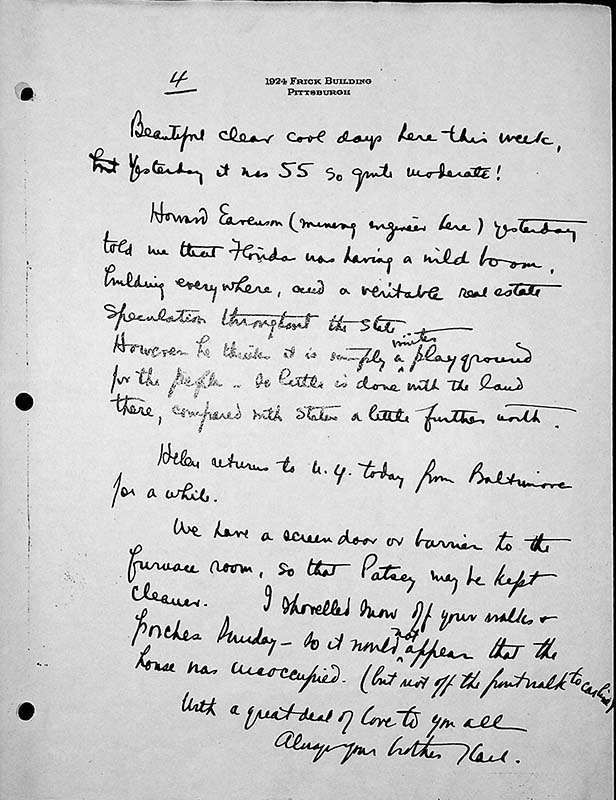 4
1924 FRICK BUILDING
PITTSBURGH
Beautiful clear cool days here this week,
but Yesterday it was 55 so quite moderate!
Howard Eavenson (mining engineer here) yesterday
told me that Florida was having a mild boom,
building everywhere, and a veritable real estate
speculation throughout the State.
However he thinks it is simply a winter playground
for the people - so little is done with the land
there, compared with States a little further north.
Helen returns to N.Y. today from Baltimore
for a while.
We have a screen door or barrier to the
furnace room, so that Patsey may be kept
cleaner. I shovelled snow off your walks &
porches Sunday - so it would not appear that the
house was unoccupied. (but not off the front walk to
With a great deal of love to you all
Always your brother Karl.